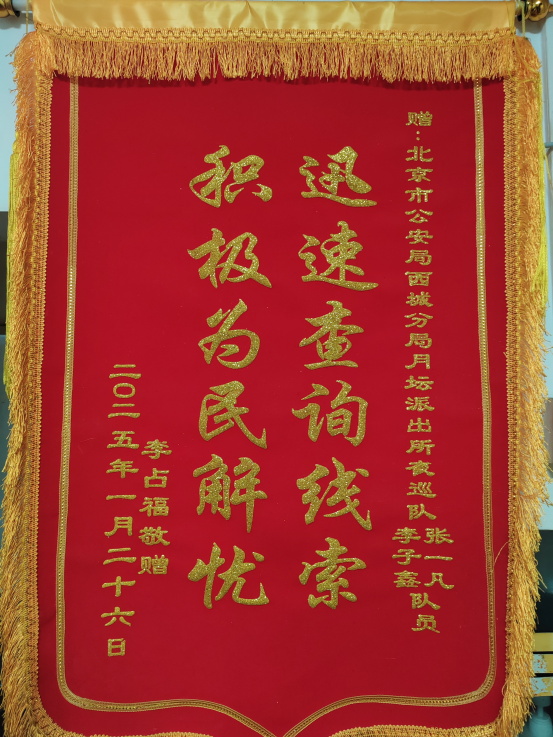 赠：北京市公安局西城分局月坛派出所夜巡队张一凡李子鑫队员
迅速查询线索
积极为民解忧
李占福敬赠
二〇二五年一月二十六日